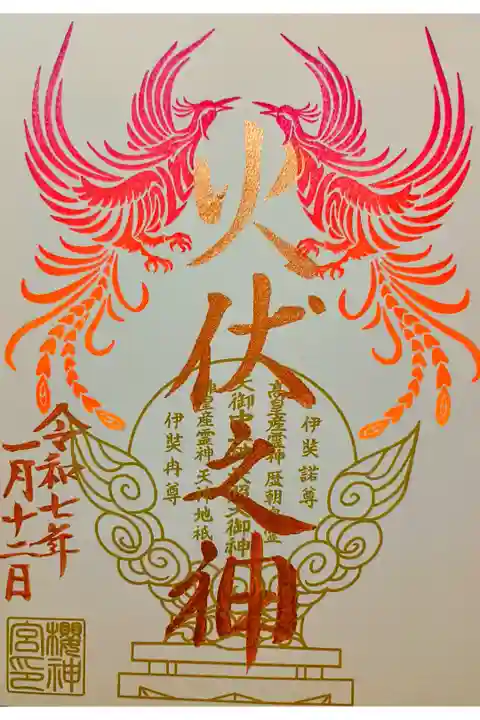 火伏之神
伊奘諾尊
高皇産霊神 歴朝皇霊
天御中主神 天照大御神
神皇産霊神 天神地祇
伊奘冉尊
令和七年
一月十二日
櫻神
宮印